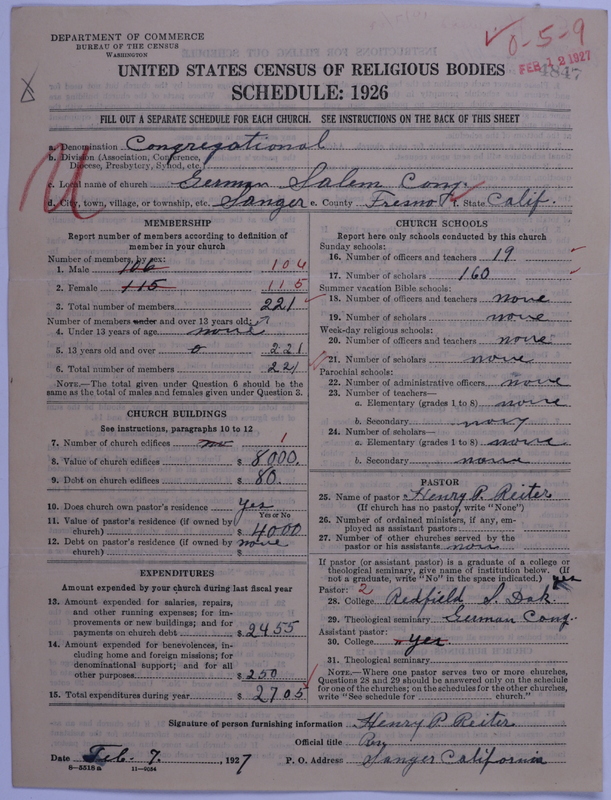 DEPARTMENT OF COMMERCE
BUREAU OF THE CENSUS
WASHINGTON
0-5-9
FEB 12 1927
4847
UNITED STATES CENSUS OF RELIGIOUS BODIES
SCHEDULE: 1926
FILL OUT A SEPARATE SCHEDULE FOR EACH CHURCH. SEE INSTRUCTIONS ON THE BACK OF THIS SHEET
a. Denomination Congregational
b. Division (Association, Conference, Diocese, Presbytery, Synod, etc.)
c. Local name of church German Salem Cong.
d. City, town, village, or township, etc. Sanger e. County Fresno f. State Calif.
MEMBERSHIP
Report number of members according to definition of member in your church
Number of members, by sex:
1. Male 106 106
2. Female 115 115
3. Total number of members 221
Number of members under and over 13 years old:
4. Under 13 years of age none
5. 13 years old and over 0 221
6. Total number of members 221
NOTE.—The total given under Question 6 should be the same as the total of males and females given under Question 3.
CHURCH BUILDINGS
See instructions, paragraphs 10 to 12
7. Number of church edifices 1
8. Value of church edifices $ 8000.
9. Debt on church edifices $ 80.
10. Does church own pastor's residence? Yes
Yes or No
11. Value of pastor's residence (if owned by church) $ 4000
12. Debt on pastor's residence (if owned by church) none $
EXPENDITURES
Amount expended by your church during last fiscal year
13. Amount expended for salaries, repairs, and other running expenses; for improvements or new buildings; and for payments on church debt $ 2455
14. Amount expended for benevolences, including home and foreign missions; for denominational support; and for all other purposes $ 250
15. Total expenditures during year $ 2705
CHURCH SCHOOLS
Report here only schools conducted by this church
Sunday schools:
16. Number of officers and teachers 19
17. Number of scholars 160
Summer vacation Bible schools:
18. Number of officers and teachers none
19. Number of scholars none
Week-day religious schools:
20. Number of officers and teachers none
21. Number of scholars none
Parochial schools:
22. Number of administrative officers none
23. Number of teachers—
a. Elementary (grades 1 to 8) none
b. Secondary none
24. Number of scholars—
a. Elementary (grades 1 to 8) none
b. Secondary none
PASTOR
25. Name of pastor Henry P. Reiter
(If church has no pastor, write "None")
26. Number of ordained ministers, if any, employed as assistant pastors
27. Number of other churches served by the pastor or his assistants none
If pastor (or assistant pastor) is a graduate of a college or theological seminary, give name of institution below. (If not a graduate, write "No" in the space indicated.) yes
Pastor: 2
28. College Redfield S. Dak
29. Theological seminary German Cong.
Assistant pastor:
30. College yes
31. Theological seminary
NOTE.—Where one pastor serves two or more churches, Questions 28 and 29 should be answered only on the schedule for one of the churches; on the schedules for the other churches, write "See schedule for church."
Signature of person furnishing information Henry P. Reiter
Official title Rev
Date Feb. 7, 1927 P. O. Address Sanger California
8-5518a 11-9034